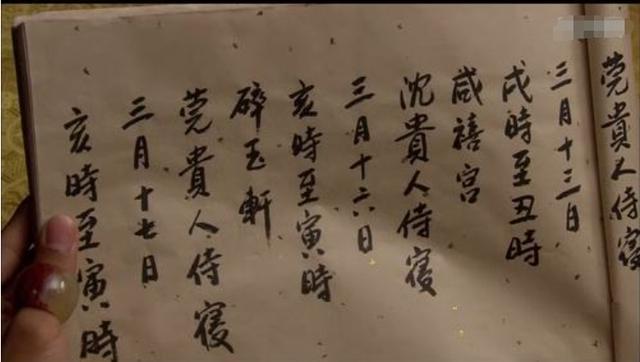 莞貴人侍寢
三月十三日
戌時至丑時
咸禧宮
沈貴人侍寢
三月十六日
亥時至寅時
碎玉軒
莞貴人侍寢
三月十七日
亥時至寅時